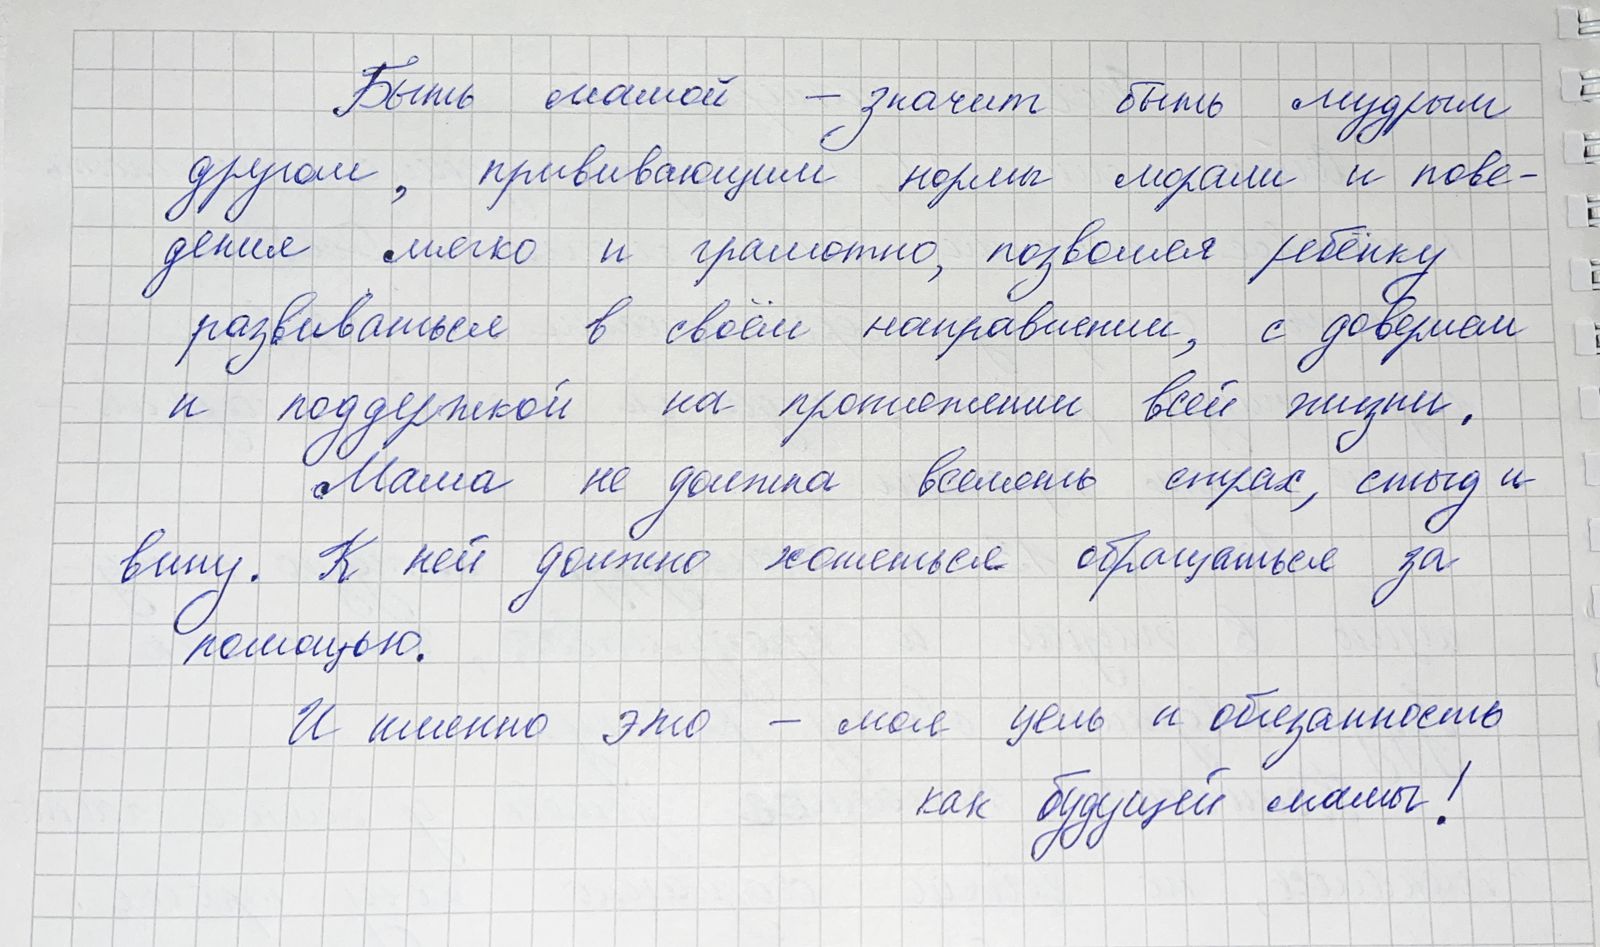 Быть мамой – значит быть мудрым
другом, прививающим нормы морали и пове-
дения мягко и грамотно, позволяя ребёнку
развиваться в своём направлении, с доверием
и поддержкой на протяжении всей жизни.
Мама не должна вселять страх, стыд и
вину. К ней должно хотеться обращаться за
помощью.
И именно это – моя цель и обязанность
как будущей мамы!